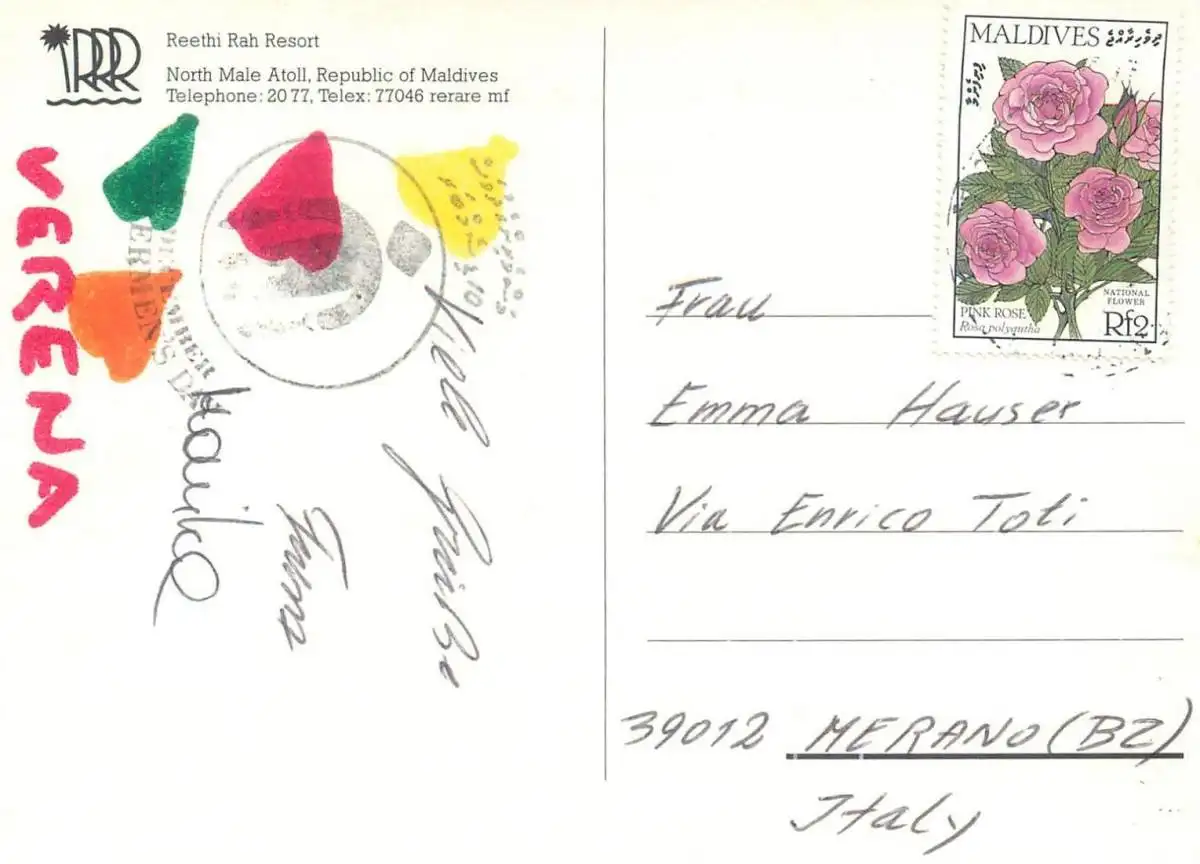 RRR
Reethi Rah Resort
North Male Atoll, Republic of Maldives
Telephone: 20 77, Telex: 77046 rerare mf
VERENA
Viele Grüße
Marika
MALDIVES
NATIONAL
FLOWER
PINK ROSE
Rosa polyantha
Rf2
Frau
Emma Hauser
Via Enrico Toti
39012 MERANO (BZ)
Italy